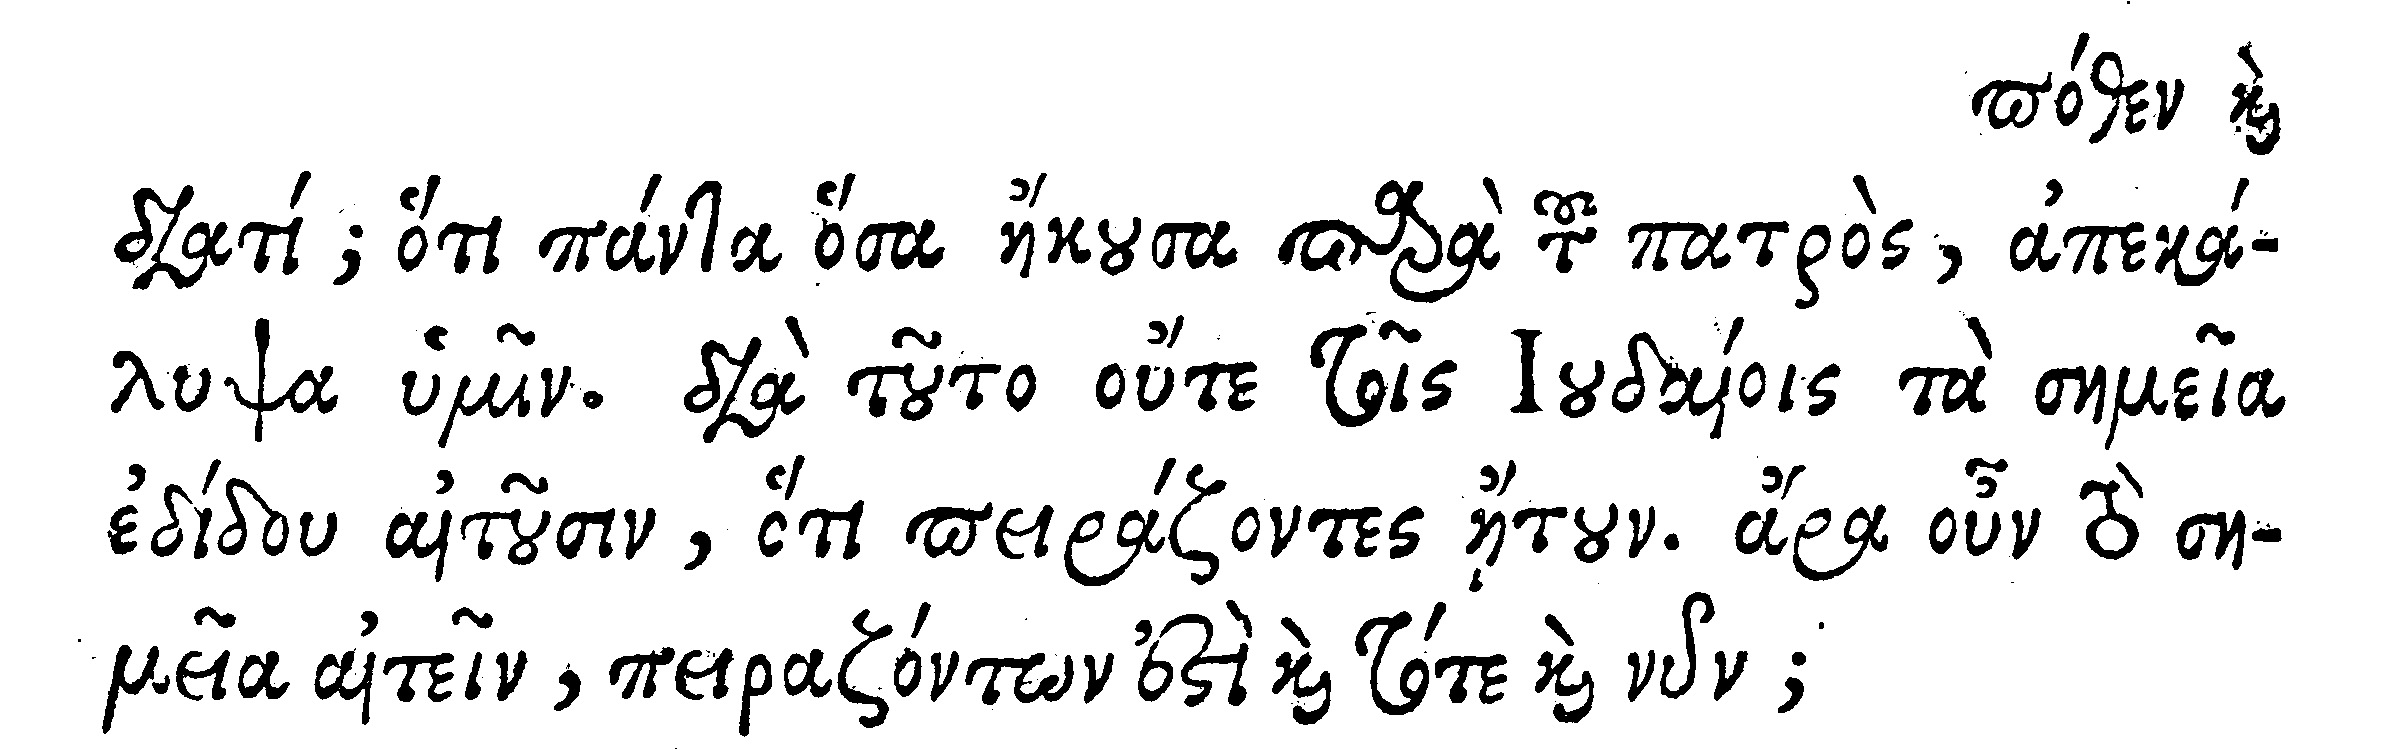 πόθεν καὶ
διατί; ὅτι πάντα ὅσα ἤκουσα παρὰ τοῦ πατρὸς, ἀπεκά-
λυψα ὑμῖν. διὰ τοῦτο οὔτε τοῖς Ἰουδαίοις τὰ σημεῖα
ἐδίδου αἰτοῦσιν, ὅτι πειράζοντες ᾔτουν. ἄρα οὖν τὸ ση-
μεῖα αἰτεῖν, πειραζόντων ἐστὶ καὶ τότε καὶ νῦν;